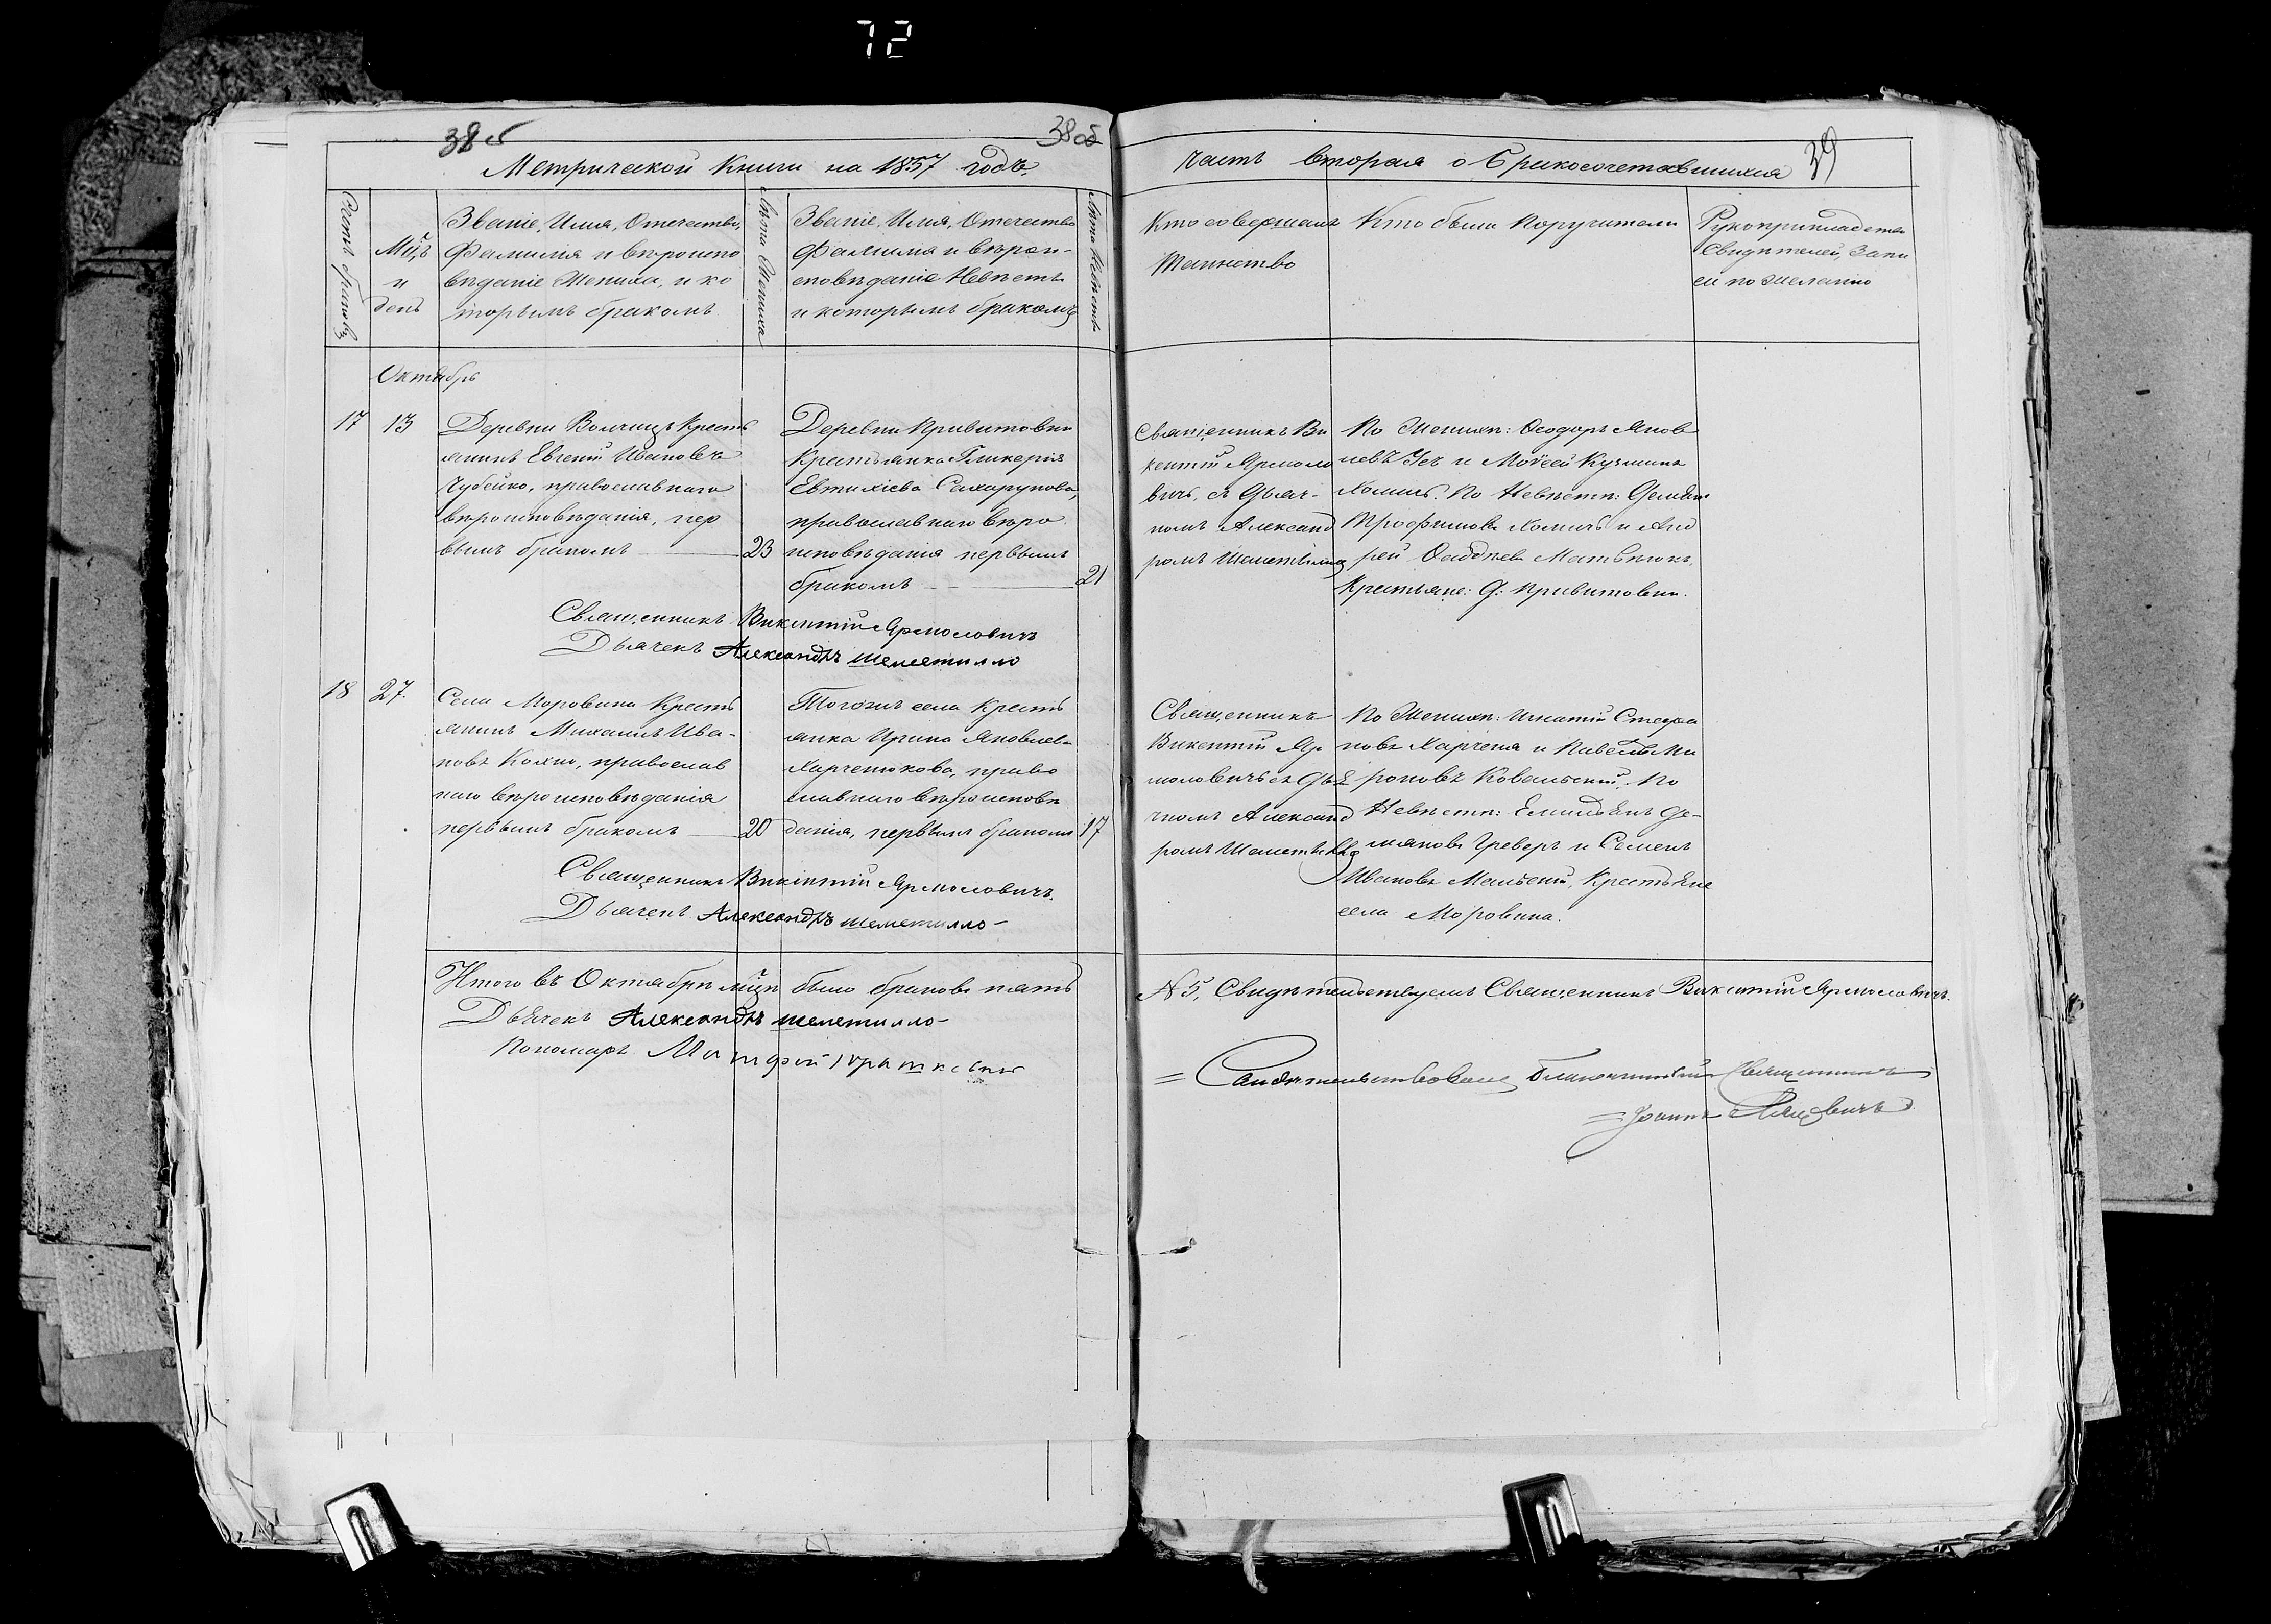 72
38 об
38 об
39
Метрической Книги на 1857 годъ.
часть вторая о Бракосочетавшихся
Счетъ браковъ
Мц̃ъ
и
день
Званіе, Имя, Отечество,
Фамилія и вѣроиспо
вѣданіе Жениха, и ко
торымъ бракомъ
Лѣта Жениха
Званіе, Имя, Отечество
Фамилія и вѣрои-
сповѣданіе Невѣсты
и которымъ бракомъ
Лѣта Невѣсты
Кто совершалъ
Таинство
Кто были Поручители
Рукоприкладство
Свидѣтелей, Запи
си по желанію
Октябрь
17
13
Деревни Волчицъ Кресть
янинъ Евгеній Ивановъ
Чубейко, православнаго
вѣроисповѣданія, пер
вымъ бракомъ
23
Деревни Привитовки
Крестьянка Гликерія
Евтихіева Сахарукова,
православнаго вѣро
исповѣданія первымъ
бракомъ
21
Священникъ Ви
кентій Ярмоло
вичъ, съ Дьяч-
комъ Александ
ромъ Шеметилло
По Женихѣ: Ѳеодоръ Яков
левъ Усъ и Моѵсей Кузминъ
Хомичъ. По Невѣстѣ: Демьян
Трофимовъ Хомичъ и Анд
рей Ѳаддѣевъ Матвѣюкъ,
Крестьяне: Д: Привитовки.
Священникъ Викентій Ярмоловичъ
Дьячекъ Александръ Шеметилло
18
27.
Села Моровина Кресть
янинъ Михаилъ Ива-
новъ Кохно, православ
наго вѣроисповѣданія
первымъ бракомъ
20
Тогожъ села Кресть
янка Ирина Яковлева
Харченюкова, право
славнаго вѣроисповѣ
данія, первымъ бракомъ
17
Священникъ
Викентій Яр
моловичъ съ Дья
чкомъ Александ
ромъ Шеметилло
По Женихѣ: Игнатій Стефа
новъ Харченя и Павелъ Ми
роновъ Ковальскій, По
Невѣстѣ: Емиліянъ Де-
мяновъ Греверъ и Семенъ
Ивановъ Мальскій, Крестьяне
села Моровина.
Священникъ Викентій Ярмоловичъ.
Дьячекъ Александръ Шеметилло
Итого въ Октябрѣ мц̃ѣ было браковъ пять
N 5, Свидѣтельствуемъ Священникъ Викентій Ярмоловичъ.
Дьячекъ Александръ Шеметилло
Пономарь Матфей
Свидѣтельствовалъ Благочинный Священникъ
Іоаннъ